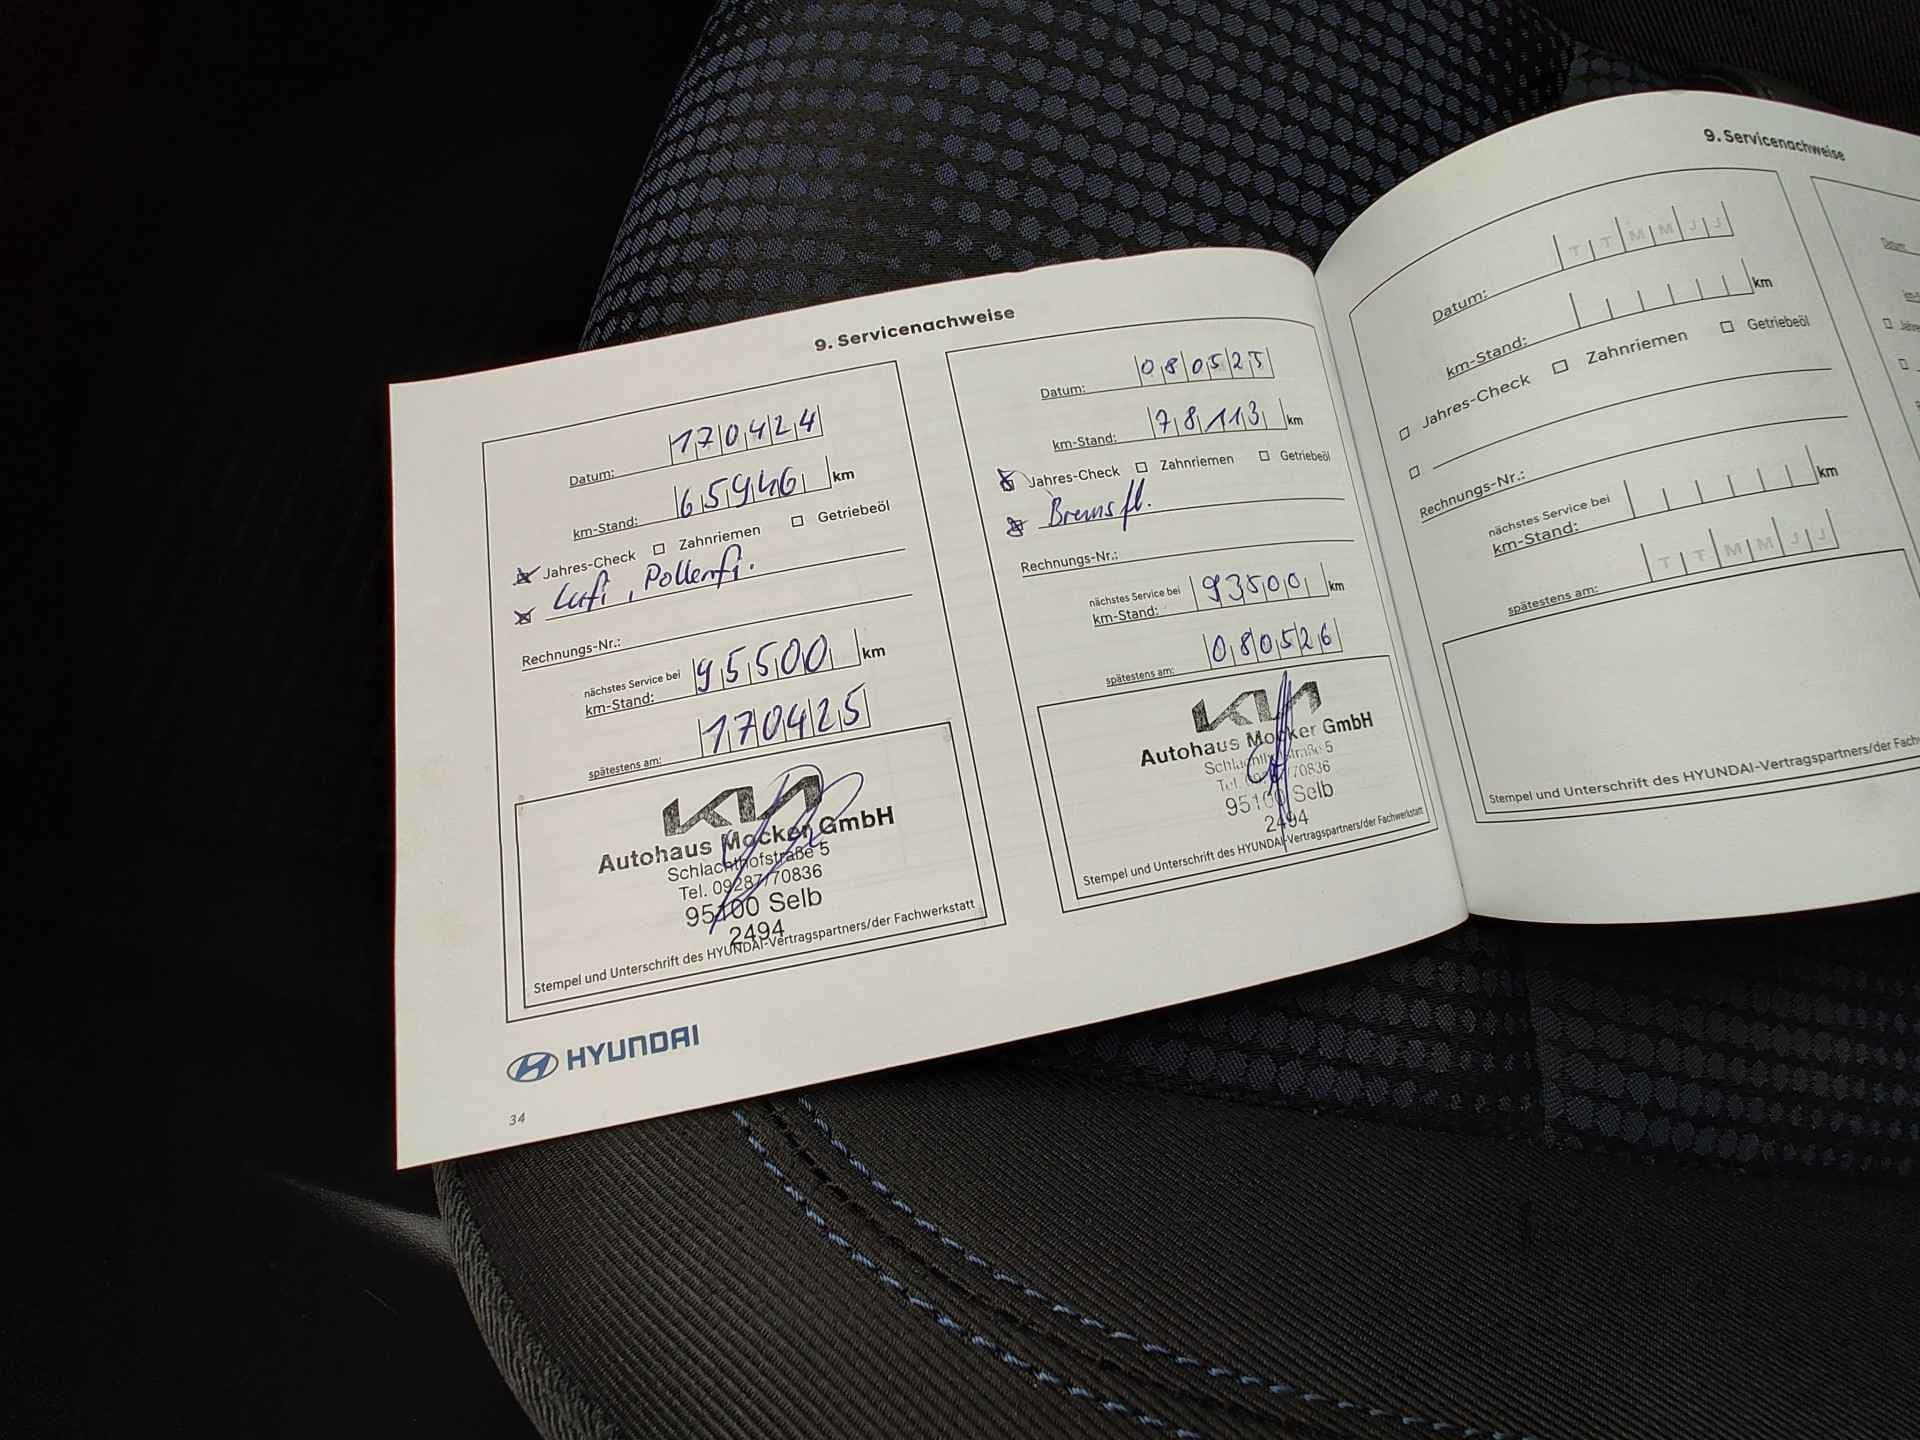 9. Servicenachweise
Datum: 170424
km-Stand: 65946 km
☒ Jahres-Check ☐ Zahnriemen ☐ Getriebeöl
☒ Lufi, Pollenfi.
Rechnungs-Nr.:
nächstes Service bei
km-Stand: 95500 km
spätestens am: 170425
KIA
Autohaus Mocker GmbH
Schlachthofstraße 5
Tel. 09287/70836
95100 Selb
2494
Stempel und Unterschrift des HYUNDAI-Vertragspartners/der Fachwerkstatt
Datum: 080525
km-Stand: 78113 km
☒ Jahres-Check ☐ Zahnriemen ☐ Getriebeöl
☒ Bremsfl.
Rechnungs-Nr.:
nächstes Service bei
km-Stand: 93500 km
spätestens am: 080526
KIA
Autohaus Mocker GmbH
Schlachthofstraße 5
Tel. 09287/70836
95100 Selb
2494
Stempel und Unterschrift des HYUNDAI-Vertragspartners/der Fachwerkstatt
HYUNDAI
34
9. Servicenachweise
Datum: T T M M J J
km-Stand: km
☐ Jahres-Check ☐ Zahnriemen ☐ Getriebeöl
☐
Rechnungs-Nr.:
nächstes Service bei
km-Stand: km
spätestens am: T T M M J J
Stempel und Unterschrift des HYUNDAI-Vertragspartners/der
Datum: